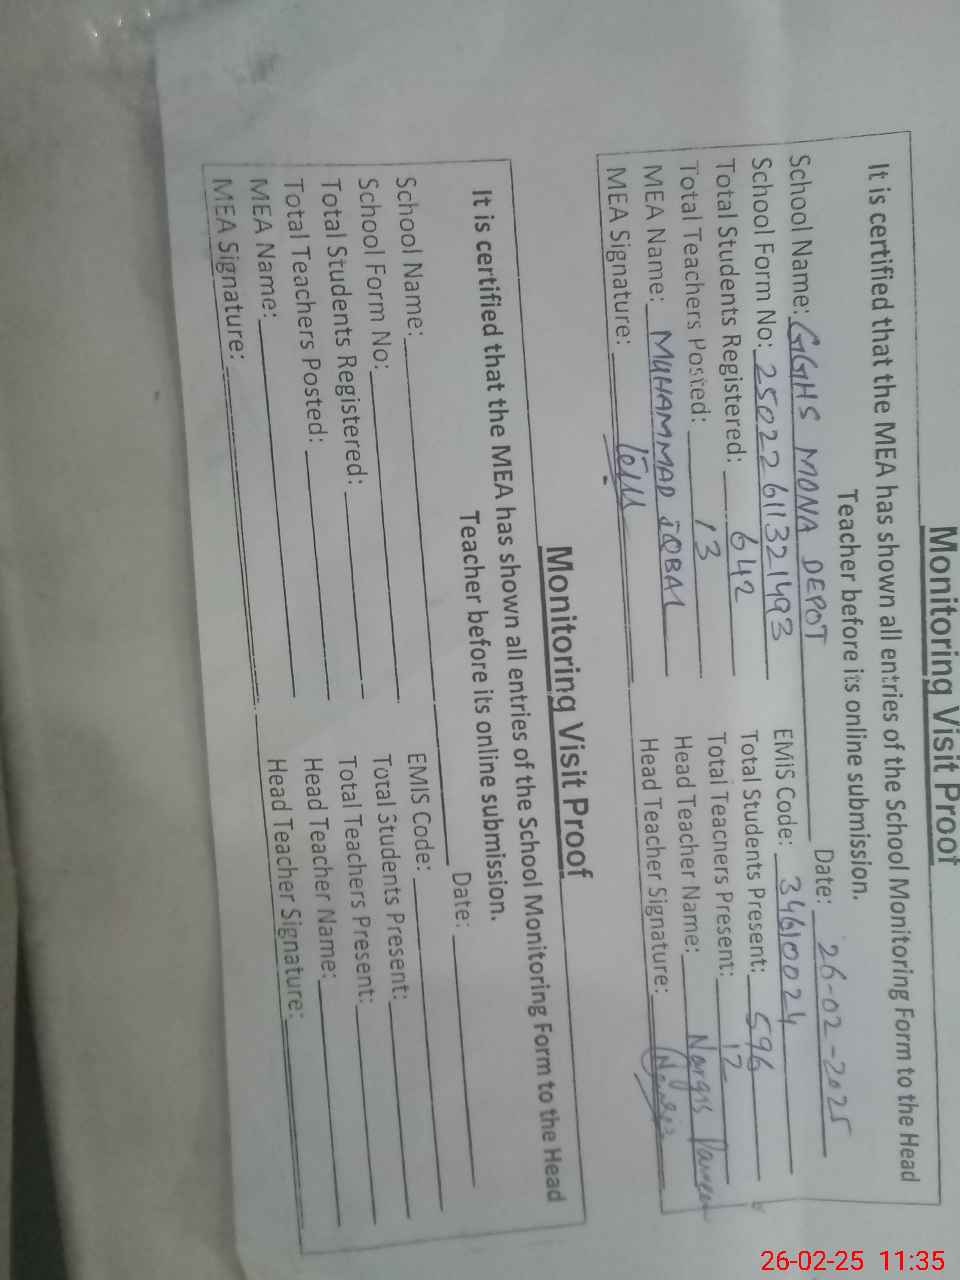 Monitoring Visit Proof
It is certified that the MEA has shown all entries of the School Monitoring Form to the Head
Teacher before its online submission.
Date: 26-02-2025
School Name: GGHS MONA DEPOT
School Form No: 25022611321493 EMIS Code: 34610024
Total Students Registered: 642 Total Students Present: 596
Total Teachers Posted: 13 Total Teachers Present: 12
MEA Name: MUHAMMAD IQBAL Head Teacher Name: Nargis Parveen
MEA Signature: Head Teacher Signature: Nargis
Monitoring Visit Proof
It is certified that the MEA has shown all entries of the School Monitoring Form to the Head
Teacher before its online submission.
Date:
School Name:
School Form No: EMIS Code:
Total Students Registered: Total Students Present:
Total Teachers Posted: Total Teachers Present:
MEA Name: Head Teacher Name:
MEA Signature: Head Teacher Signature:
26-02-25 11:35